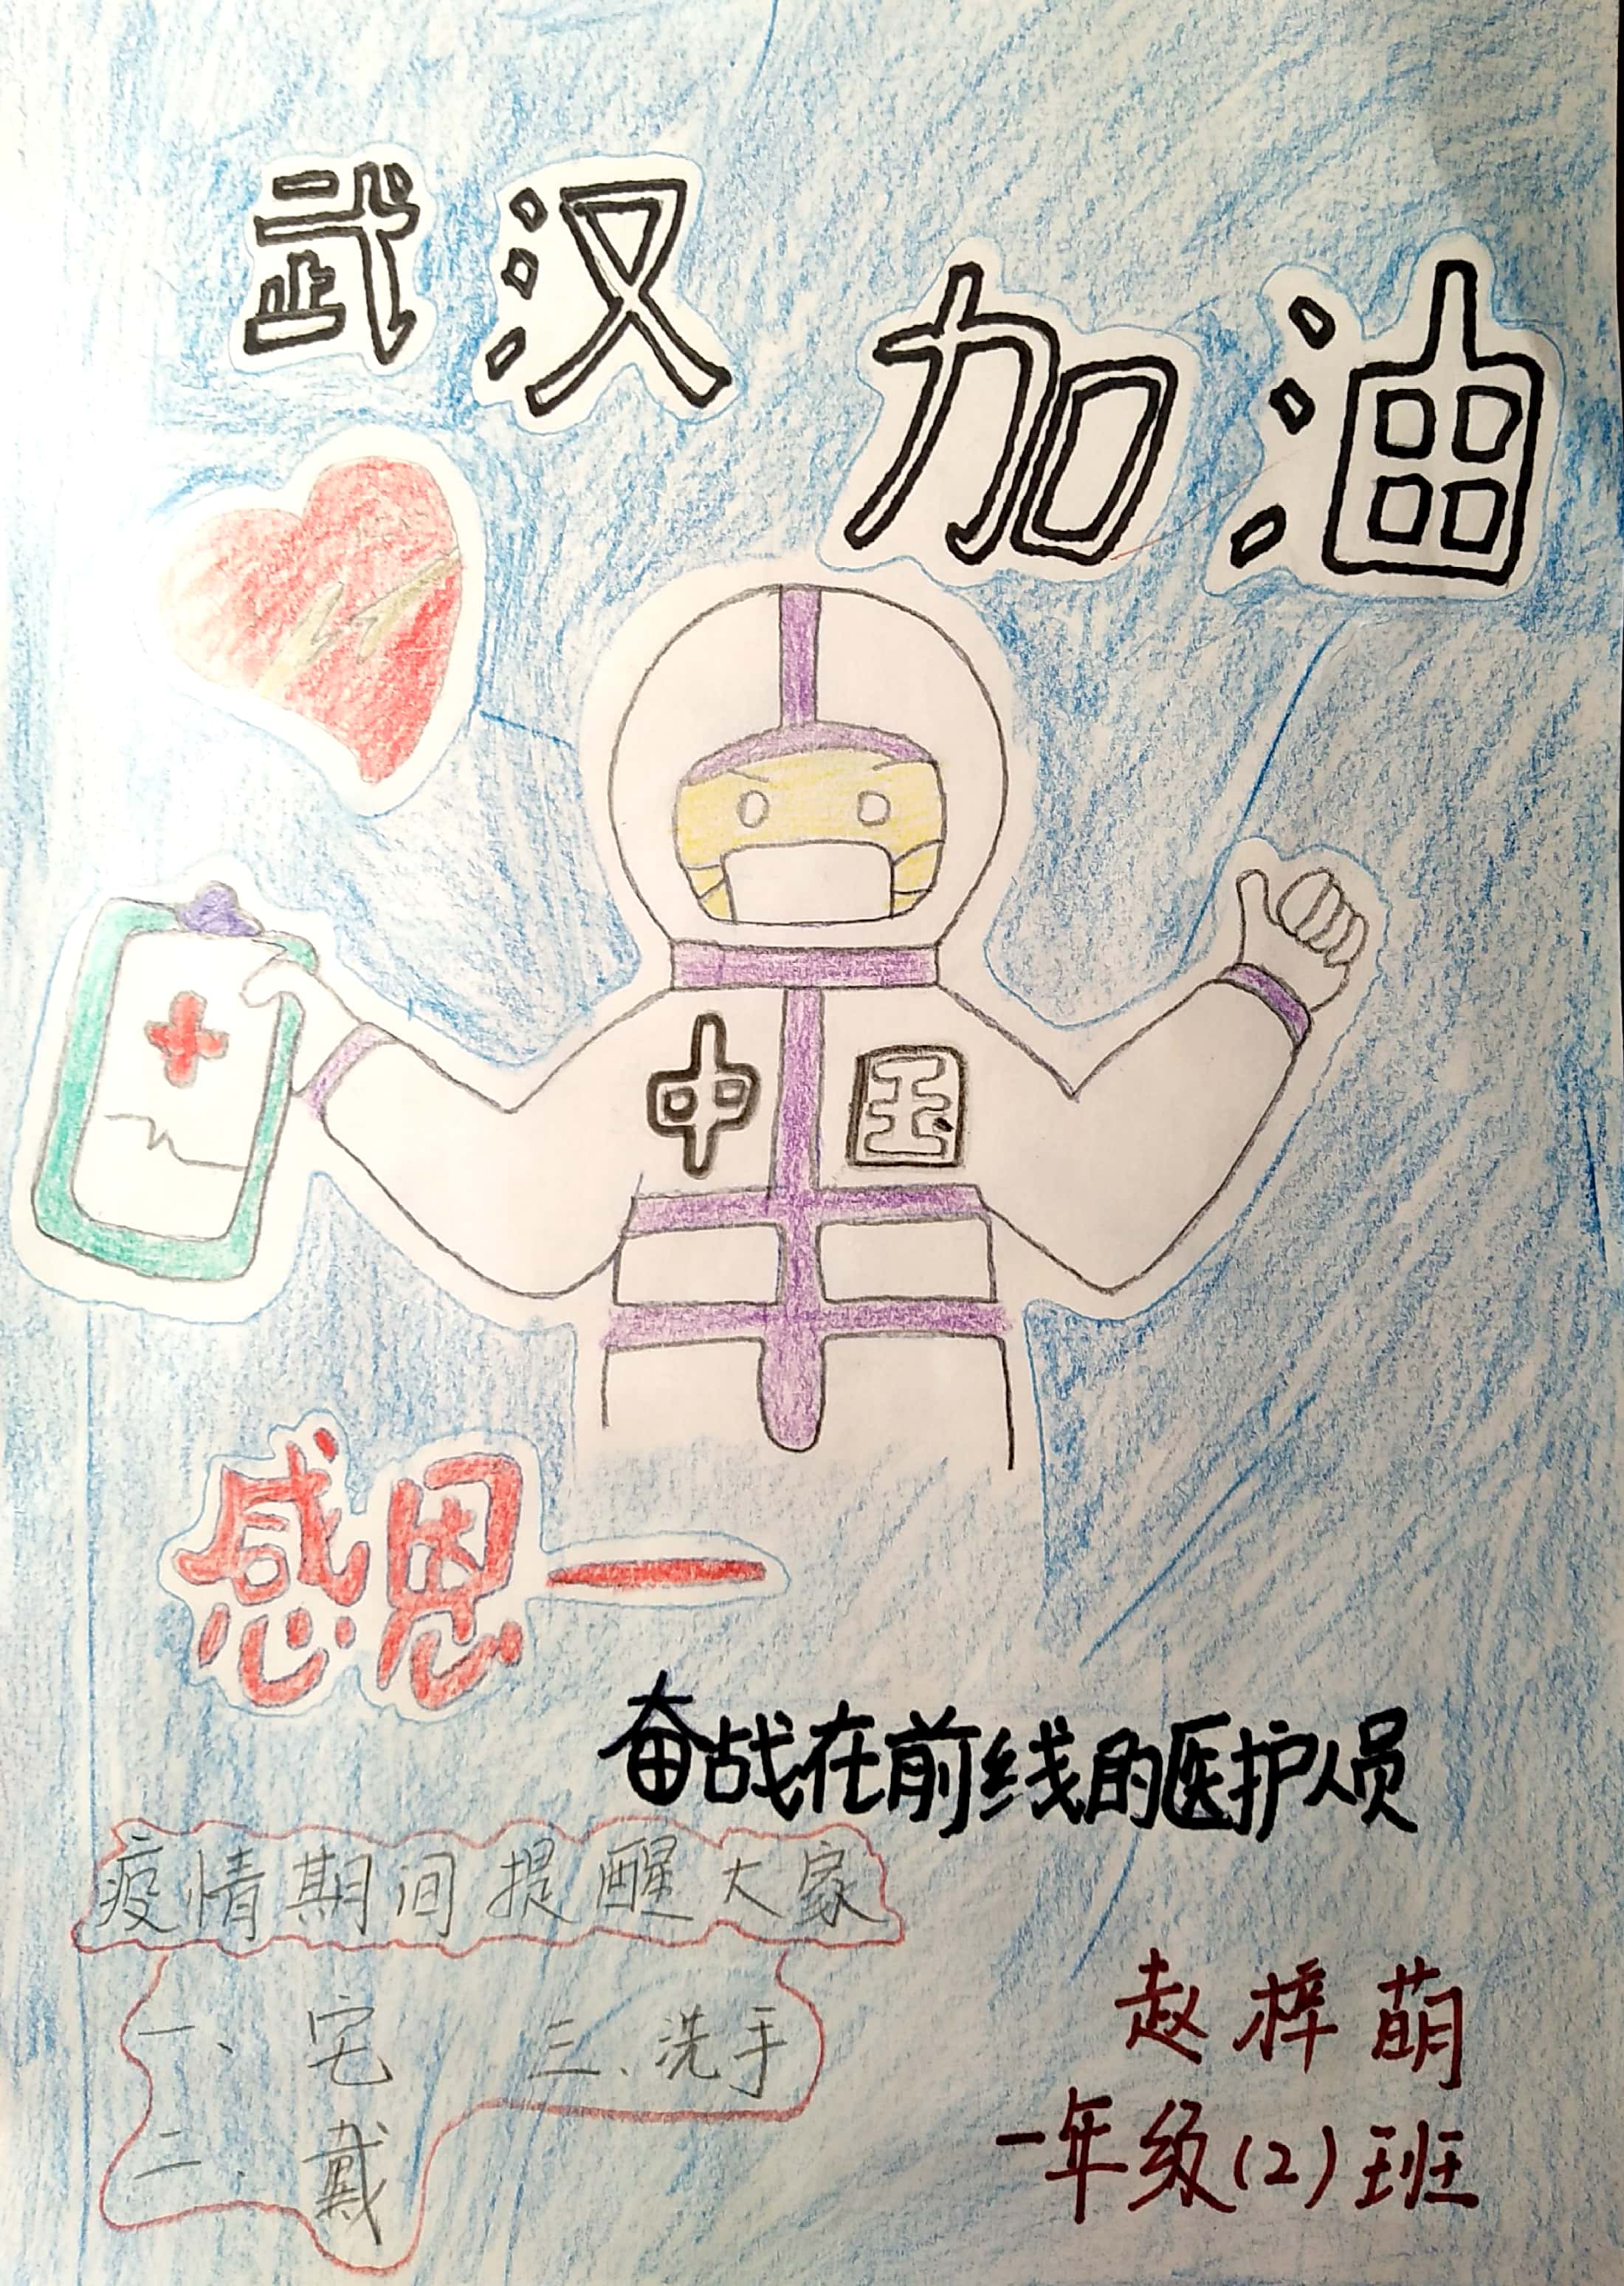 武汉
加油
中国
感恩一
奋战在前线的医护人员
疫情期间提醒大家
一、宅 三、洗手
二、戴
赵梓萌
一年级(2)班